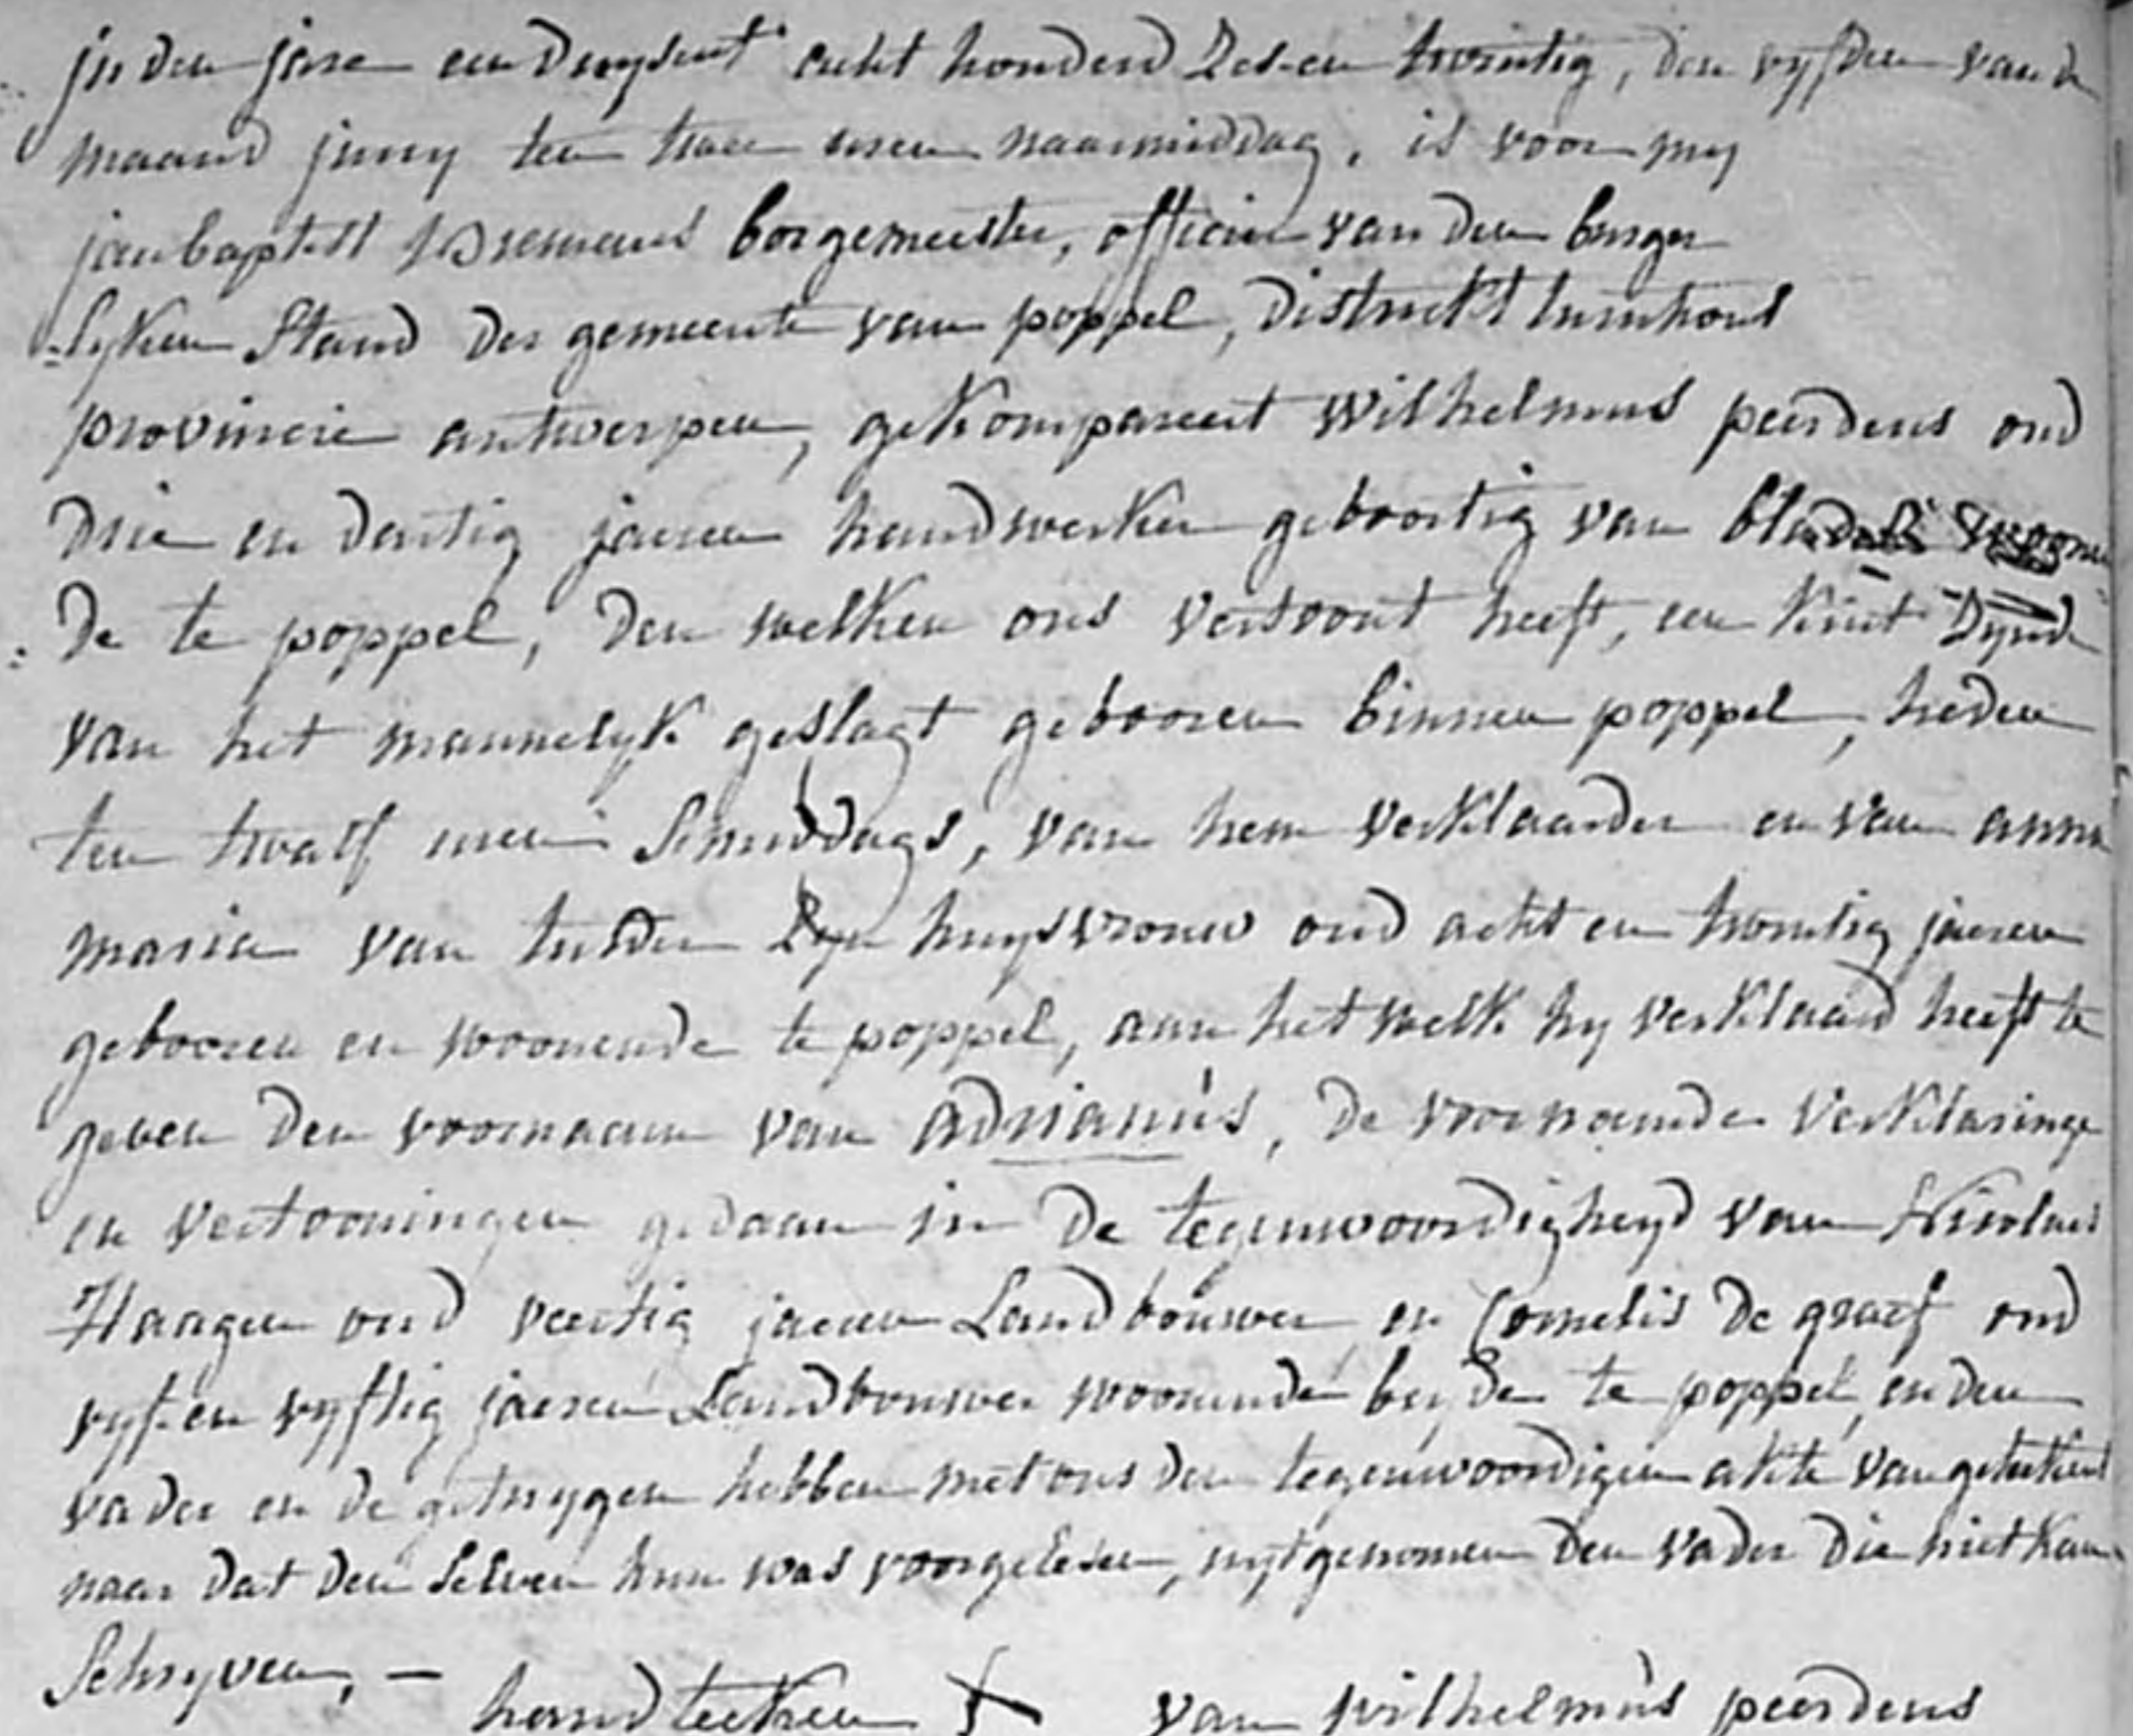 in den jare een duysent acht honderd zes-en twintig, den vyfden van de
maand juny ten twee uren naarmiddag, is voor my
jan baptist borgemeester, officier van den burger
=lyken Stand der gemeente van poppel, distrikt turnhout
provincie antwerpen, gekompareert Wilhelmus peerdens oud
drie en dertig jaeren handwerker geboortig van bladel woonen
=de te poppel, den welken ons vertoont heeft, een kint zynde
van het mannelyk geslagt gebooren binnen poppel, heden
ten twalf uren Smiddags, van hem verklaarder en van anna
maria van tulder zyn huysvrouw oud acht en twintig jaeren
gebooren en woonende te poppel, aan het welk hy verklaard heeft te
geven den voornaam van Adrianus, de voornoemde verklaringe
en vertooningen gedaan in de tegenwoordigheyd van Nicolaus
Haagen oud veertig jaeren Landbouwer en Cornelis de graef oud
vyf-en vyftig jaeren Landbouwer woonende beyde te poppel, en den
vader en de getuygen hebben met ons den tegenwoordigen akte van geteekent
naar dat den Selven hun was voorgelesen, uytgenomen den vader die niet kan
Schryven, — handteeken van wilhelmus peerdens